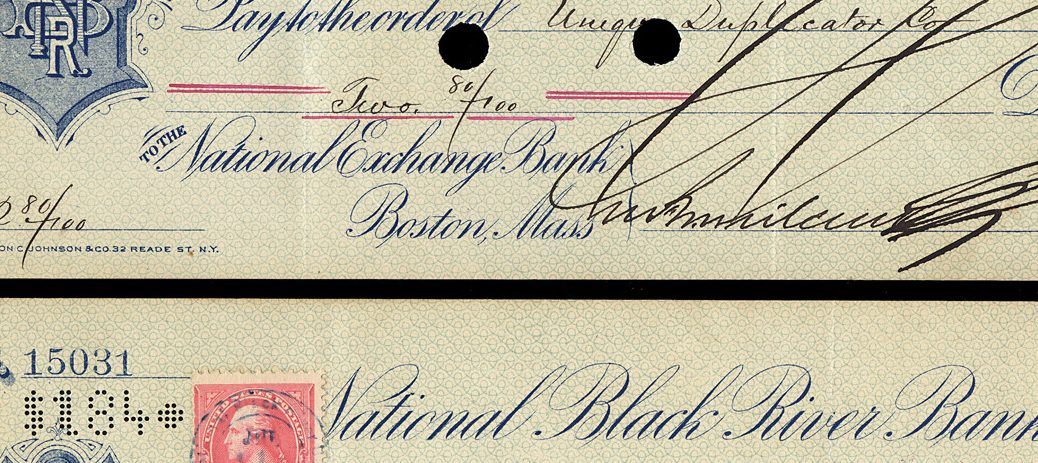 Pay to the order of Unique Duplicator Co
Two. 80/100
TO THE National Exchange Bank
Boston, Mass
80/100
JOHNSON & CO. 32 READE ST. N.Y.
15031
$184*
UNITED STATES POSTAGE
National Black River Bank